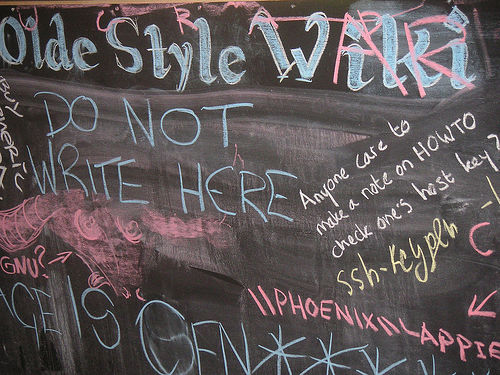 Olde Style Wiki
DO NOT
WRITE HERE
Anyone care to
make a note on HOWTO
check one's host key?
GNU?
\\PHOENIX\\LAPPIE
IS